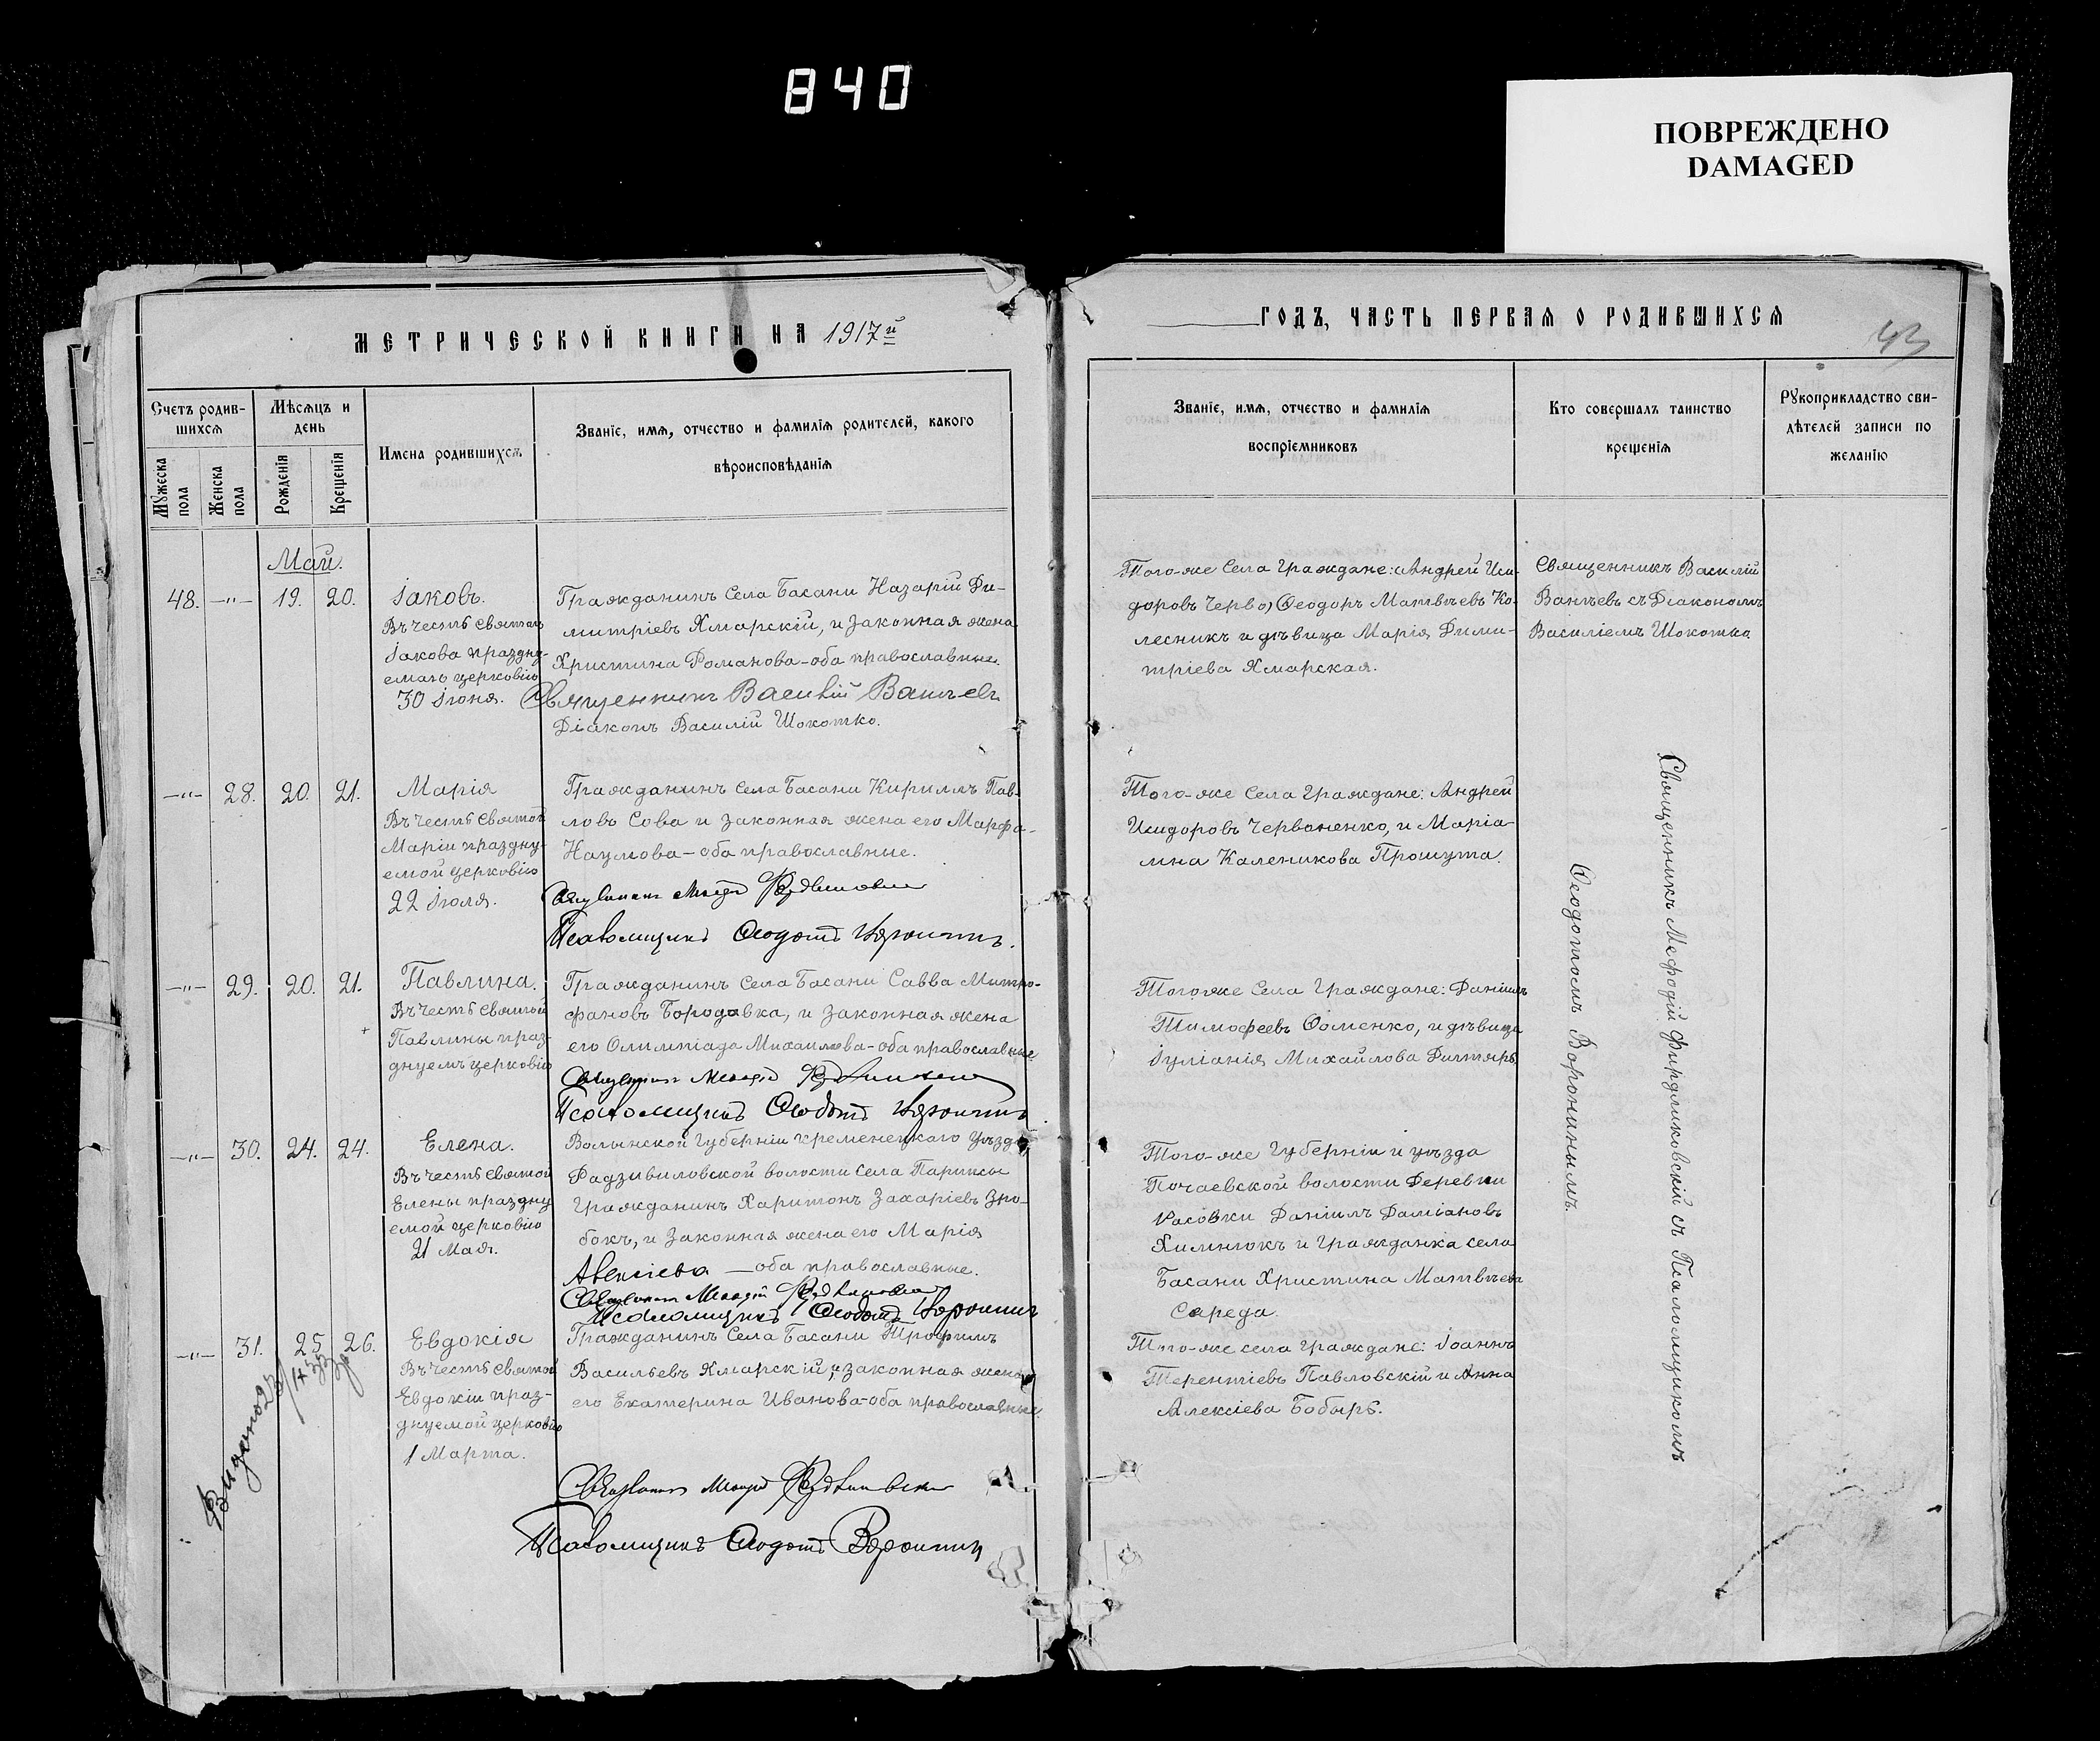 840
ПОВРЕЖДЕНО
DAMAGED
МЕТРИЧЕСКОЙ КНИГИ НА 1917й
Счетъ родив-
шихся
Мѣсяцъ и
день
Имена родившихся
Званіе, имя, отчество и фамилія родителей, какого
вѣроисповѣданія
Мужеска
пола
Женска
пола
Рожденія
Крещенія
Май.
48. —"— 19. 20. Іаковъ.
Въ честь святаго
Іакова праздну-
емаго церковію
30 Іюня.
Гражданинъ села Басани Назарій Ди-
митріевъ Хмарскій, и законная жена
Христина Романова-оба православные.
Священникъ Василій Ванчевъ
Діаконъ Василій Шокотко.
—"— 28. 20. 21. Марія
Въ честь святой
Маріи праздну-
емой церковію
22 Іюля.
Гражданинъ села Басани Кириллъ Пав-
ловъ Сова и законная жена его Марфа
Наумова-оба православные.
Священникъ Мефодій
Псаломщикъ Ѳеодотъ Воронинъ.
—"— 29. 20. 21. Павлина.
Въ честь святой
Павлины праз-
днуемъ церковію
Гражданинъ села Басани Савва Митро-
фановъ Бородавка, и законная жена
его Олимпіада Михаилова-оба православные
Священникъ Мефодій
Псаломщикъ Ѳеодотъ Воронинъ
—"— 30. 24. 24. Елена.
Въ честь святой
Елены праздну
емой церковію
21 Мая.
Волынской губерніи Кременецкаго уѣзда
Радзивиловской волости села
Гражданинъ Харитонъ Захаріевъ Зро-
бокъ, и законная жена его Марія
Алексіева — оба православные.
Священникъ Мефодій
Псаломщикъ Ѳеодотъ Воронинъ
—"— 31. 25 26. Евдокія
Въ честь святой
Евдокіи праз-
днуемой церковію
1 Марта.
Гражданинъ села Басани Трофимъ
Васильевъ Хмарскій, и законная жена
его Екатерина Иванова-оба православные.
Священникъ Мефодій
Псаломщикъ Ѳеодотъ Воронинъ
ГОДЪ, ЧАСТЬ ПЕРВАЯ О РОДИВШИХСЯ
43
Званіе, имя, отчество и фамилія
воспріемниковъ
Кто совершалъ таинство
крещенія
Рукоприкладство сви-
дѣтелей записи по
желанію
Того-же села граждане: Андрей Иси-
доровъ Черво, Ѳеодоръ Матвѣевъ Ко-
лесникъ и дѣвица Марія Дими-
тріева Хмарская.
Священникъ Василій
Ванчевъ съ Діакономъ
Василіемъ Шокотко
Того-же села граждане: Андрей
Исидоровъ Червоненко, и Маріа-
мна Каленикова Прошута.
Того же села граждане: Даніилъ
Тимофеевъ Ѳоменко, и дѣвица
Іуліанія Михайлова
Того-же губерніи и уѣзда
Почаевской волости деревни
Расовки Даніилъ Даміановъ
Химнюкъ и гражданка села
Басани Христина Матвѣева
Середа.
Того-же села граждане: Іоаннъ
Терентіевъ Павловскій и Анна
Алексіева Бобырь.
Священникъ Мефодій Фирдликовскій съ Псаломщикомъ
Ѳеодотомъ Воронинымъ.